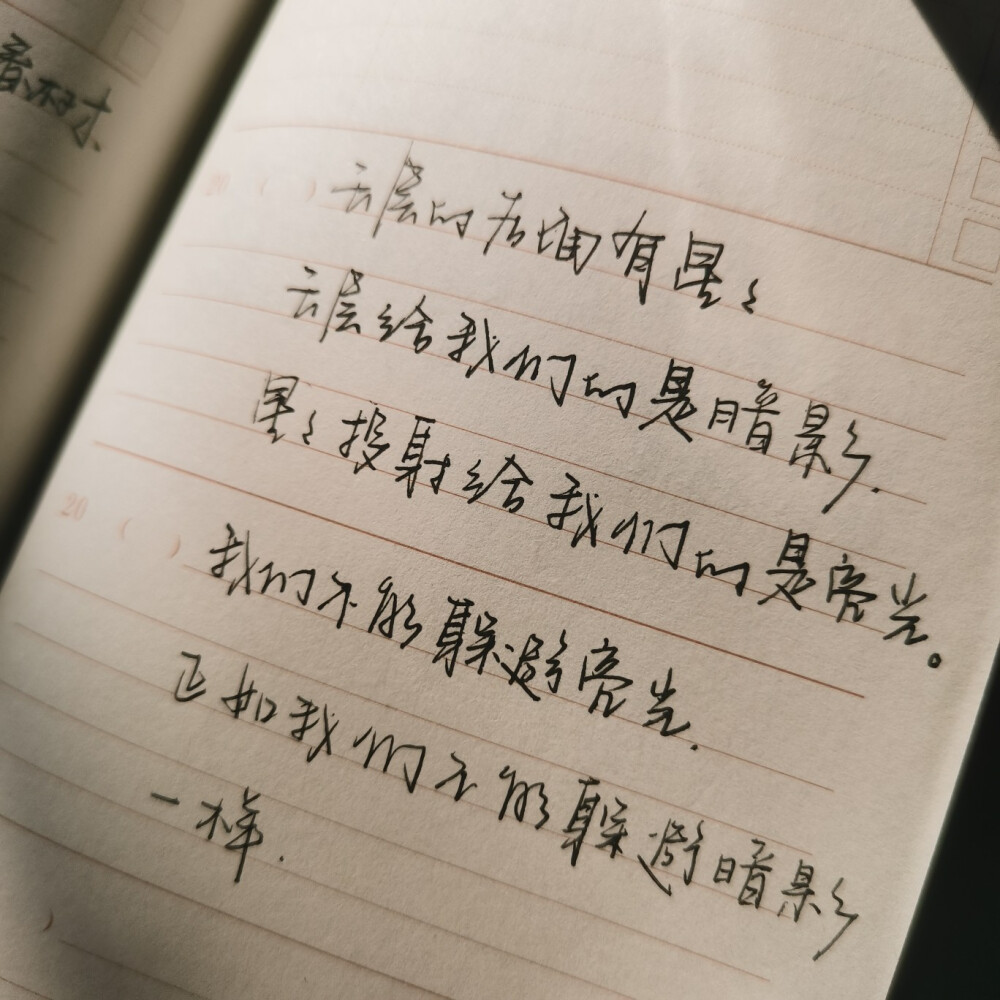 20 ( ) 云层的有星々
云层给我们的是暗影.
星々投射给我们的是亮光。
20 ( ) 我们不能躲避亮光.
正如我们不能躲避暗影
一样.